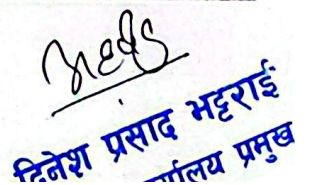 दिनेश प्रसाद भट्टराई
कार्यालय प्रमुख